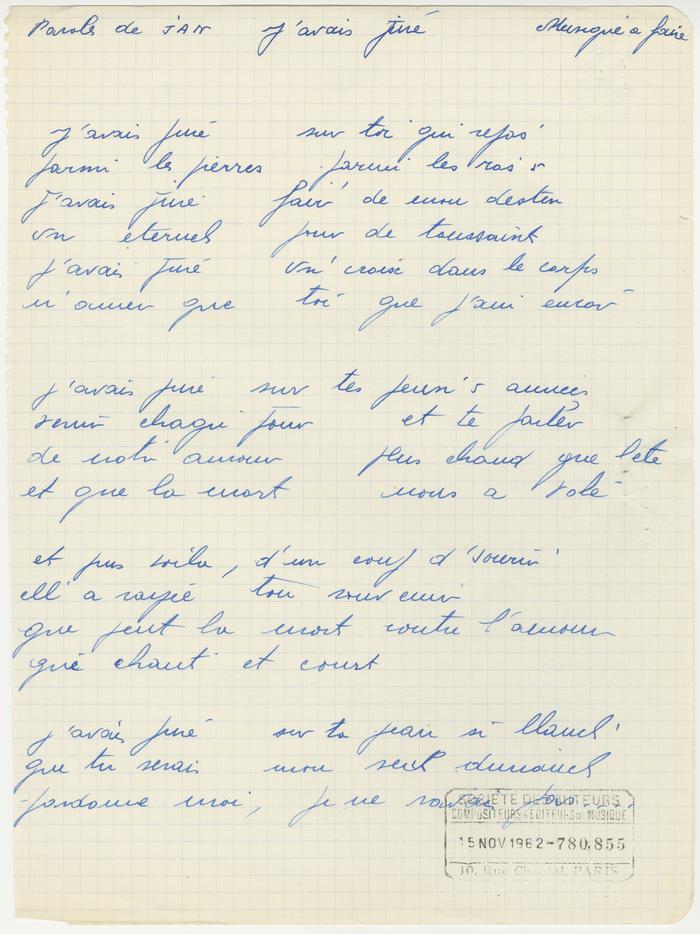 Parole de JAN j'avais juré Musique a faire
j'avais juré sur toi qui repos'
parmi les pierres parmi les ros's
j'avais juré fair' de mon destin
un eternel jour de toussaint
j'avais juré un' croix dans le corps
n'aimer que toi que j'aim' encor'
j'avais juré sur tes jeun's années
venir chaqu' jour et te parler
de notr' amour plus chaud que l'été
et que la mort nous a volé
et puis voila, d'un coup d'sourir'
ell' a rayé ton souvenir
que peut la mort contre l'amour
qui chant' et court
j'avais juré sur ta peau si blanch'
que tu serais mon seul dimanch'
pardonne moi, je ne savais pas.....
SOCIÉTÉ DES AUTEURS
COMPOSITEURS & EDITEURS DE MUSIQUE
15 NOV 1962-780,855
10, Rue Chaptal, PARIS